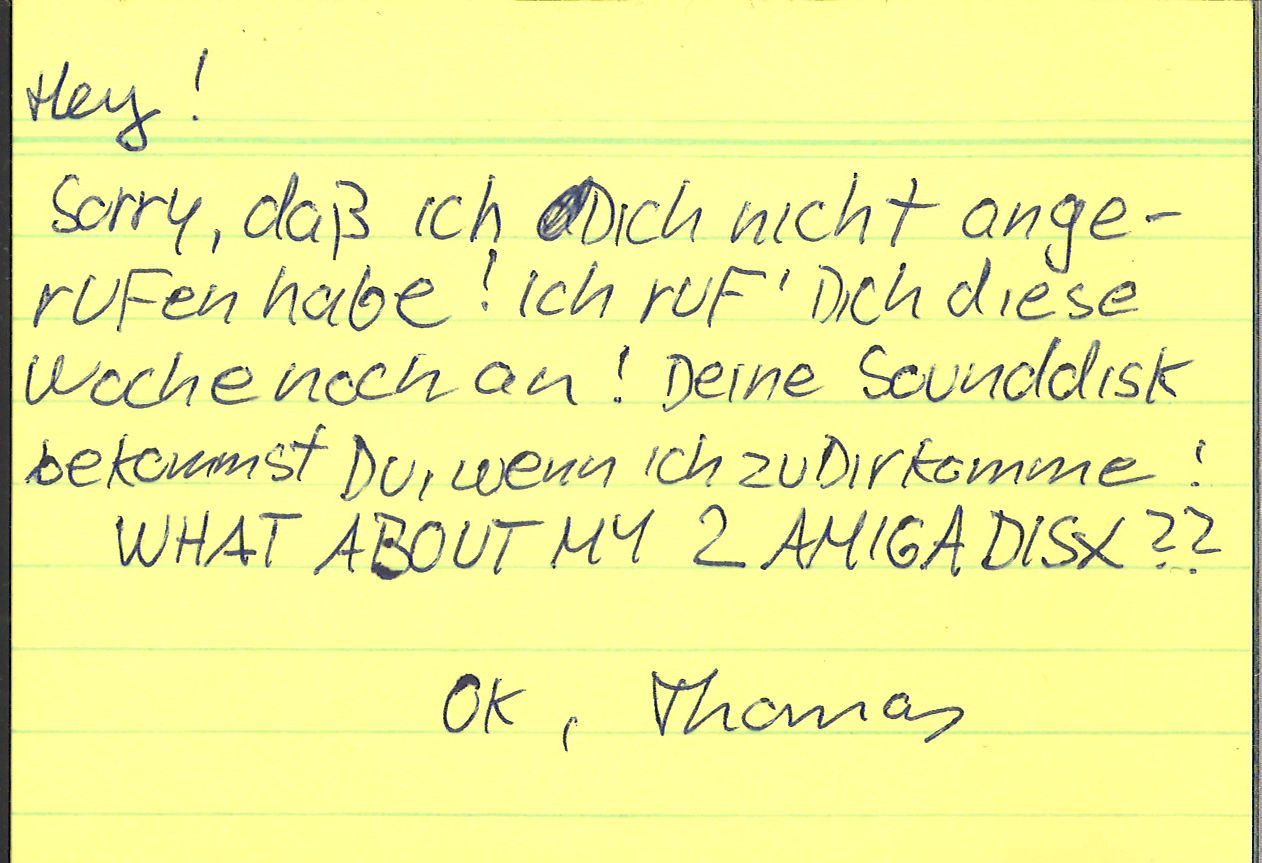 Hey!
Sorry, daß ich Dich nicht ange-
rufen habe! Ich ruf' Dich diese
Woche noch an! Deine Sounddisk
bekommst Du, wenn ich zu Dir komme!
WHAT ABOUT MY 2 AMIGA DISX??
Ok, Thomas